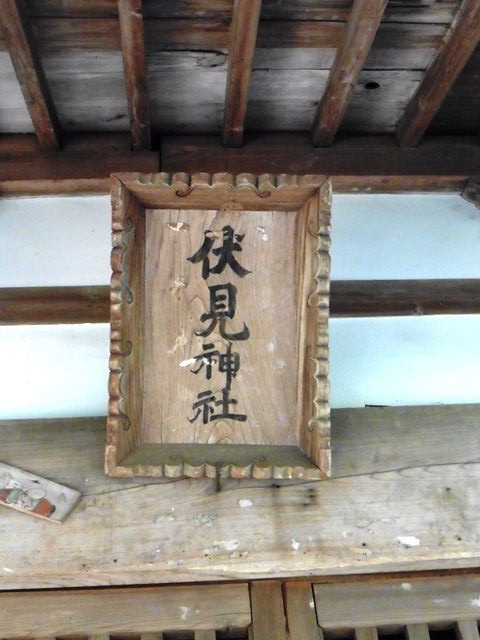 伏見神社